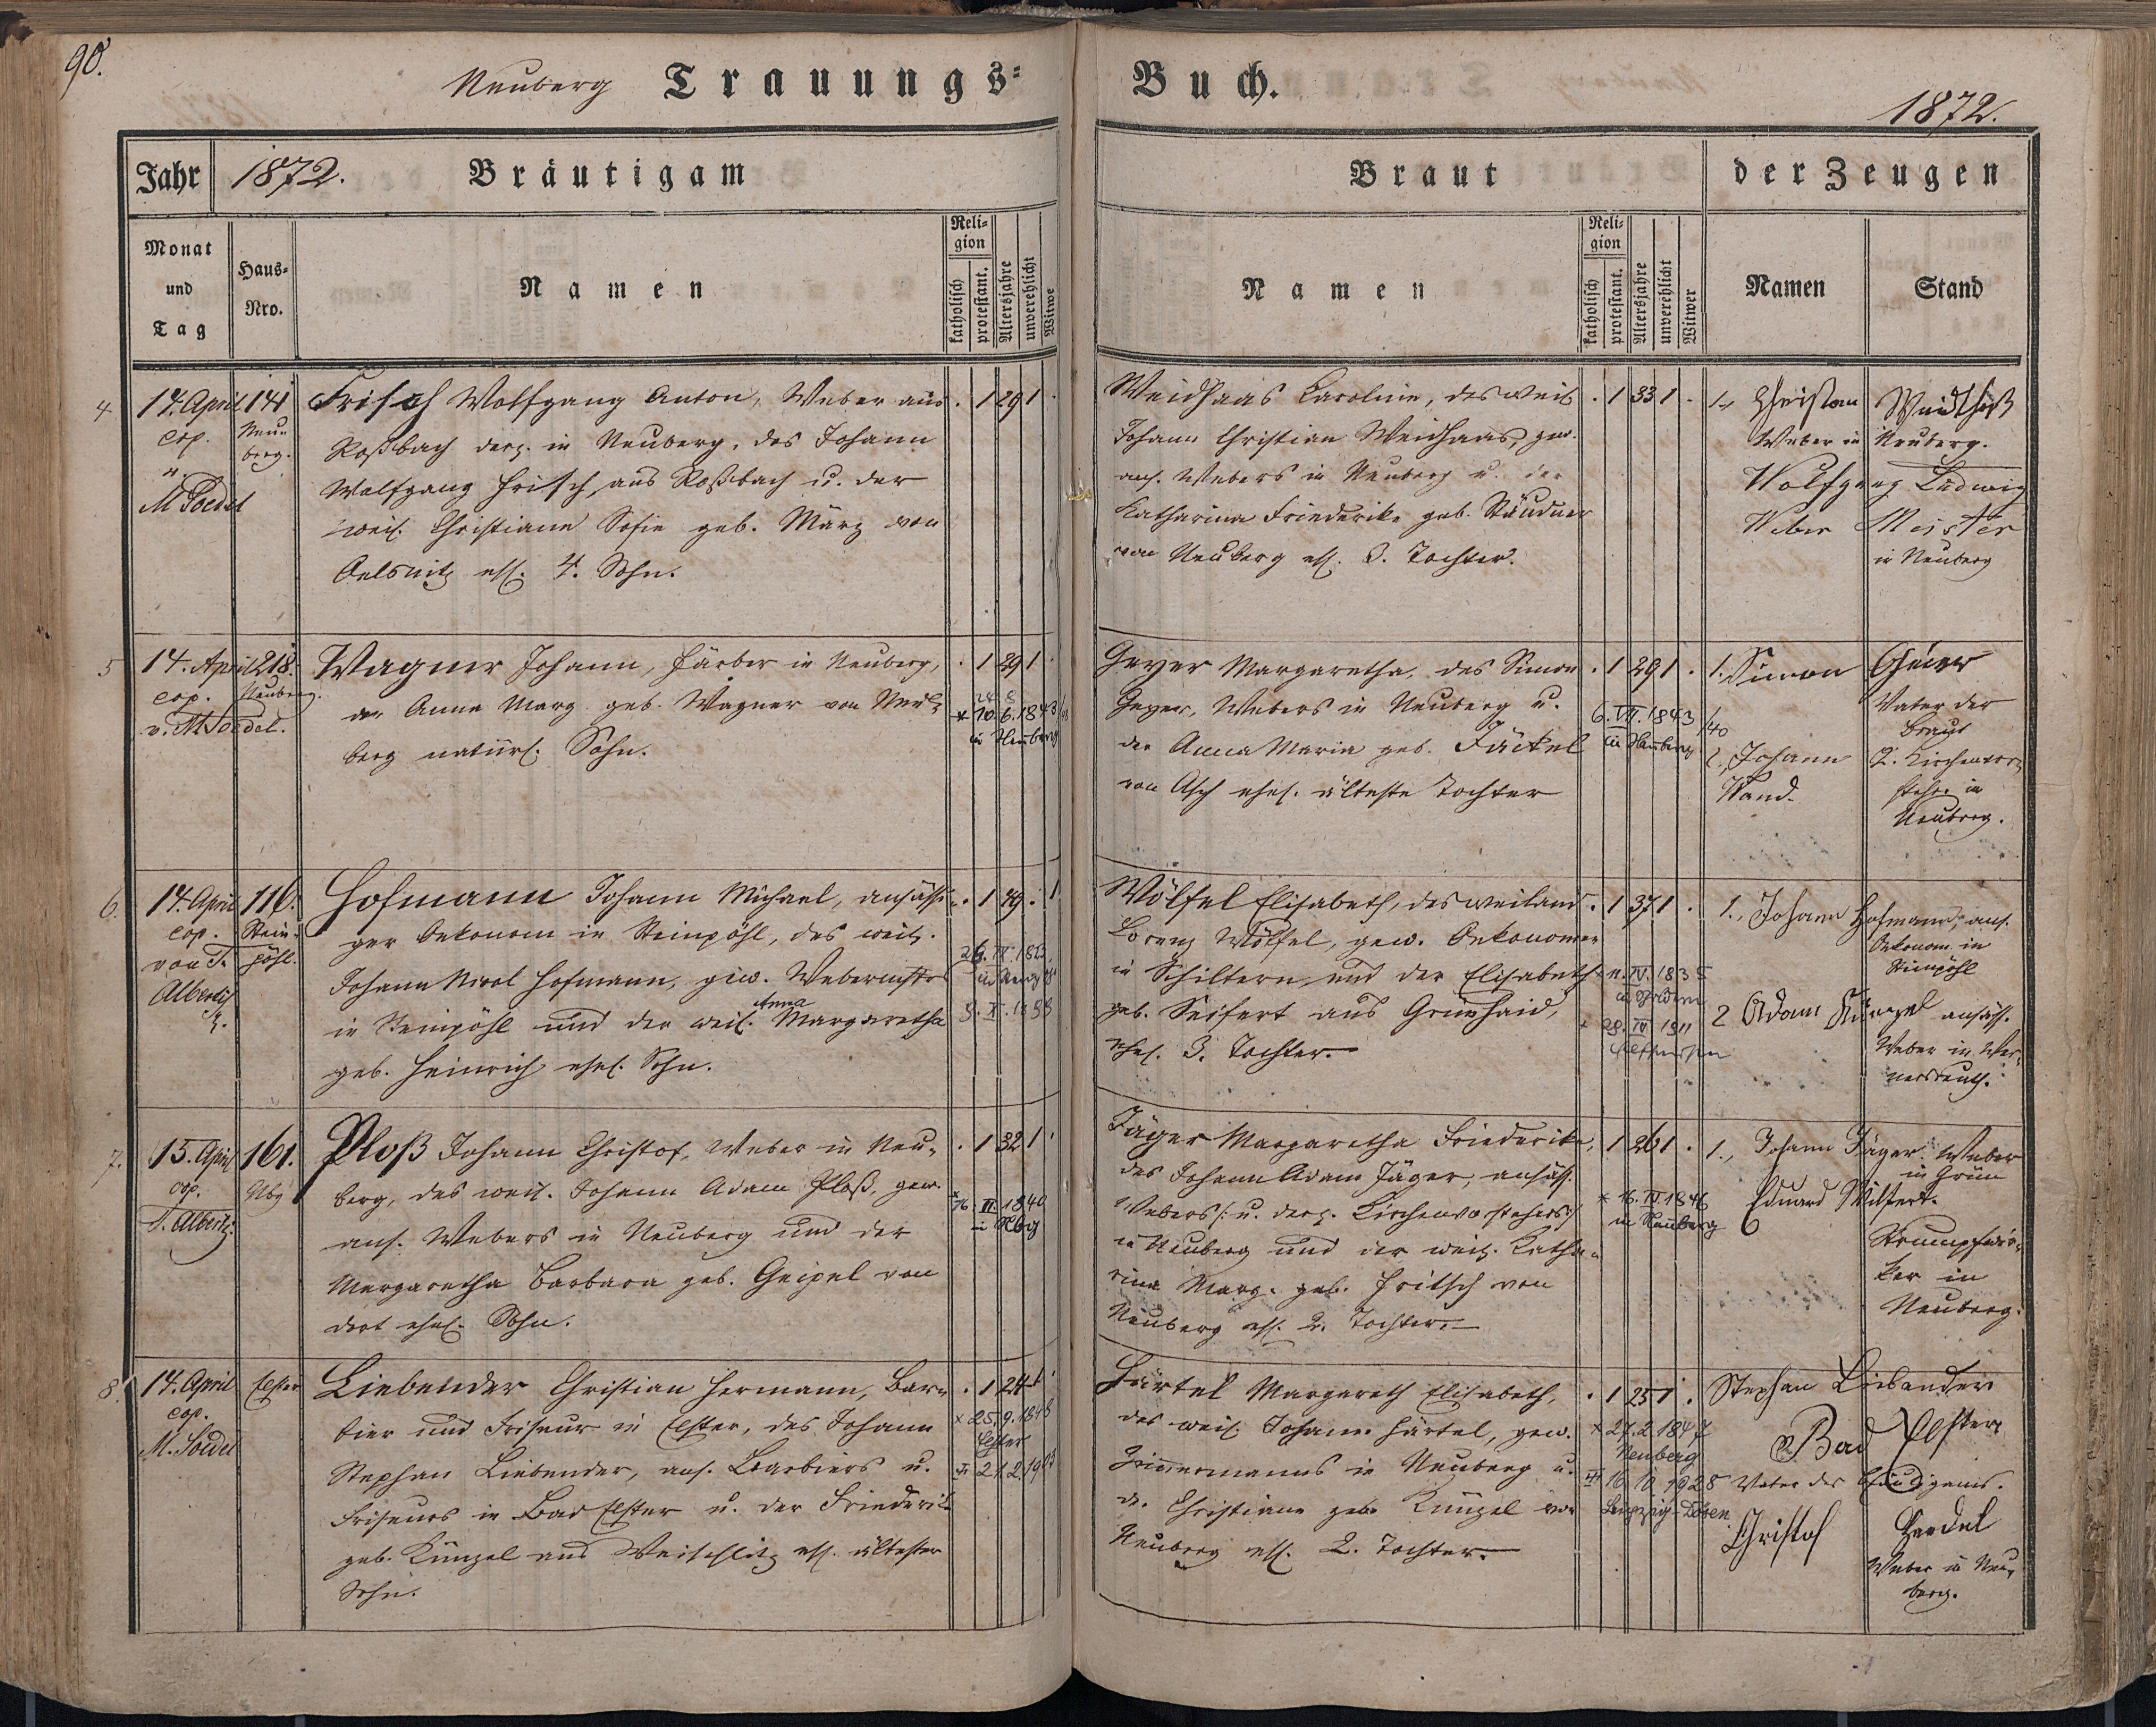 90.
Neuberg Trauungs=
Buch.
1872.
Jahr 1872. Bräutigam
Braut
der Zeugen
Monat und Tag
Haus=Nro.
Namen
Religion
katholisch
protestant.
Altersjahre
unverehlicht
Witwe
Namen
Religion
katholisch
protestant.
Altersjahre
unverehlicht
Witwer
Namen
Stand
4 14. April 141 Frisch Wolfgang Anton, Weber aus . 1 29 1
cop. Neu=
berg.
M Soedel
Roßbach derz. in Neuberg, des Johann
Wolfgang Frisch, aus Roßbach u. der
weil. Christiane Sofie geb. März von
Oelsnitz ehl. 4. Sohn.
Weidhaas Caroline, des weil. . 1 33 1 .
Johann Christian Weidhaas, gew.
ans. Webers in Neuberg u. der
Katharina Friederike geb. Stäudner
von Neuberg ehl. 3. Tochter.
1., Christian Weidhaß
Weber in Neuberg.
Wolfgang Ludwig
Weber Meister
in Neuberg
5 14. April 218. Wagner Johann, Färber in Neuberg, . 1 29 1
cop. Neuberg.
v. M Soedel.
der Anna Marg. geb. Wagner von Neu=
berg natürl. Sohn.
* 10.6.1843
in Neuberg
Geyer Margaretha, des Simon . 1 29 1 .
Geyer, Webers in Neuberg u.
der Anna Maria geb. Jäckel
von Asch ehel. älteste Tochter
6. VII. 1843
in Neuberg
1. Simon Geier
Vater der
Braut
2., Johann Wand. Kirchenvor=
steher in
Neuberg.
6. 14. April 116. Hofmann Johann Michael, ansässi= . 1 49 . 1
cop. Stein=
von T. pöhl.
Alberti
ger Oekonom in Steinpöhl, des weil.
Johann Nicol Hofmann, gew. Webermstrs
in Steinpöhl und der weil. Anna Margaretha
geb. Heinrich ehel. Sohn.
Wölfel Elisabeth, des weiland . 1 37 1 .
Lorenz Wölfel, gew. Oekonomen
in Schildern und der Elisabeth
geb. Seifert aus Grünhaid,
ehel. 3. Tochter.
IV. 1835
28. IV 1911
1., Johann Hofmann, ans.
Oekonom in
Steinpöhl
2 Adam Künzel ansäss.
Weber in Wer=
nersreuth.
7. 15. April 161. Ploß Johann Christof, Weber in Neu= . 1 32 1
cop. Nbg
T. Alberti.
berg, des weil. Johann Adam Ploß, gew.
ans. Webers in Neuberg und der
Margaretha Barbara geb. Geipel von
dort ehel. Sohn.
1840
in Nbg
Jäger Margaretha Friederike, 1 26 1 .
des Johann Adam Jäger, ansäss.
Webers /: u. derz. Kirchenvorstehers :/
in Neuberg und der weil. Katha=
rina Marg. geb. Fritsch von
Neuberg ehl. 2. Tochter.
* 16. IV 1846
in Neuberg
1., Johann Jäger. Weber
in Grün
Eduard Wilfert.
Strumpfwir=
ker in
Neuberg.
8. 14. April Elster Liebender Christian Hermann, Bar= . 1 24 1
cop.
M. Soedel
bier und Friseur in Elster, des Johann
Stephan Liebender, ans. Barbiers u.
Friseurs in Bad Elster u. der Friederike
geb. Künzel aus Weischlitz ehl. ältester
Sohn.
* 25.9.1848
Elster
21.2.19
Härtel Margareth Elisabeth, . 1 25 1 .
des weil. Johann Härtel, gew.
Zimmermanns in Neuberg u.
d. Christiane geb. Künzel von
Neuberg ehl. 2. Tochter.
* 27.2.1847
Neuberg
16.10.1928
Leipzig-Dösen
Stephan Liebender
Bad Elster
Vater des Bräutigams.
Christof Herdel
Weber in Neu=
berg.